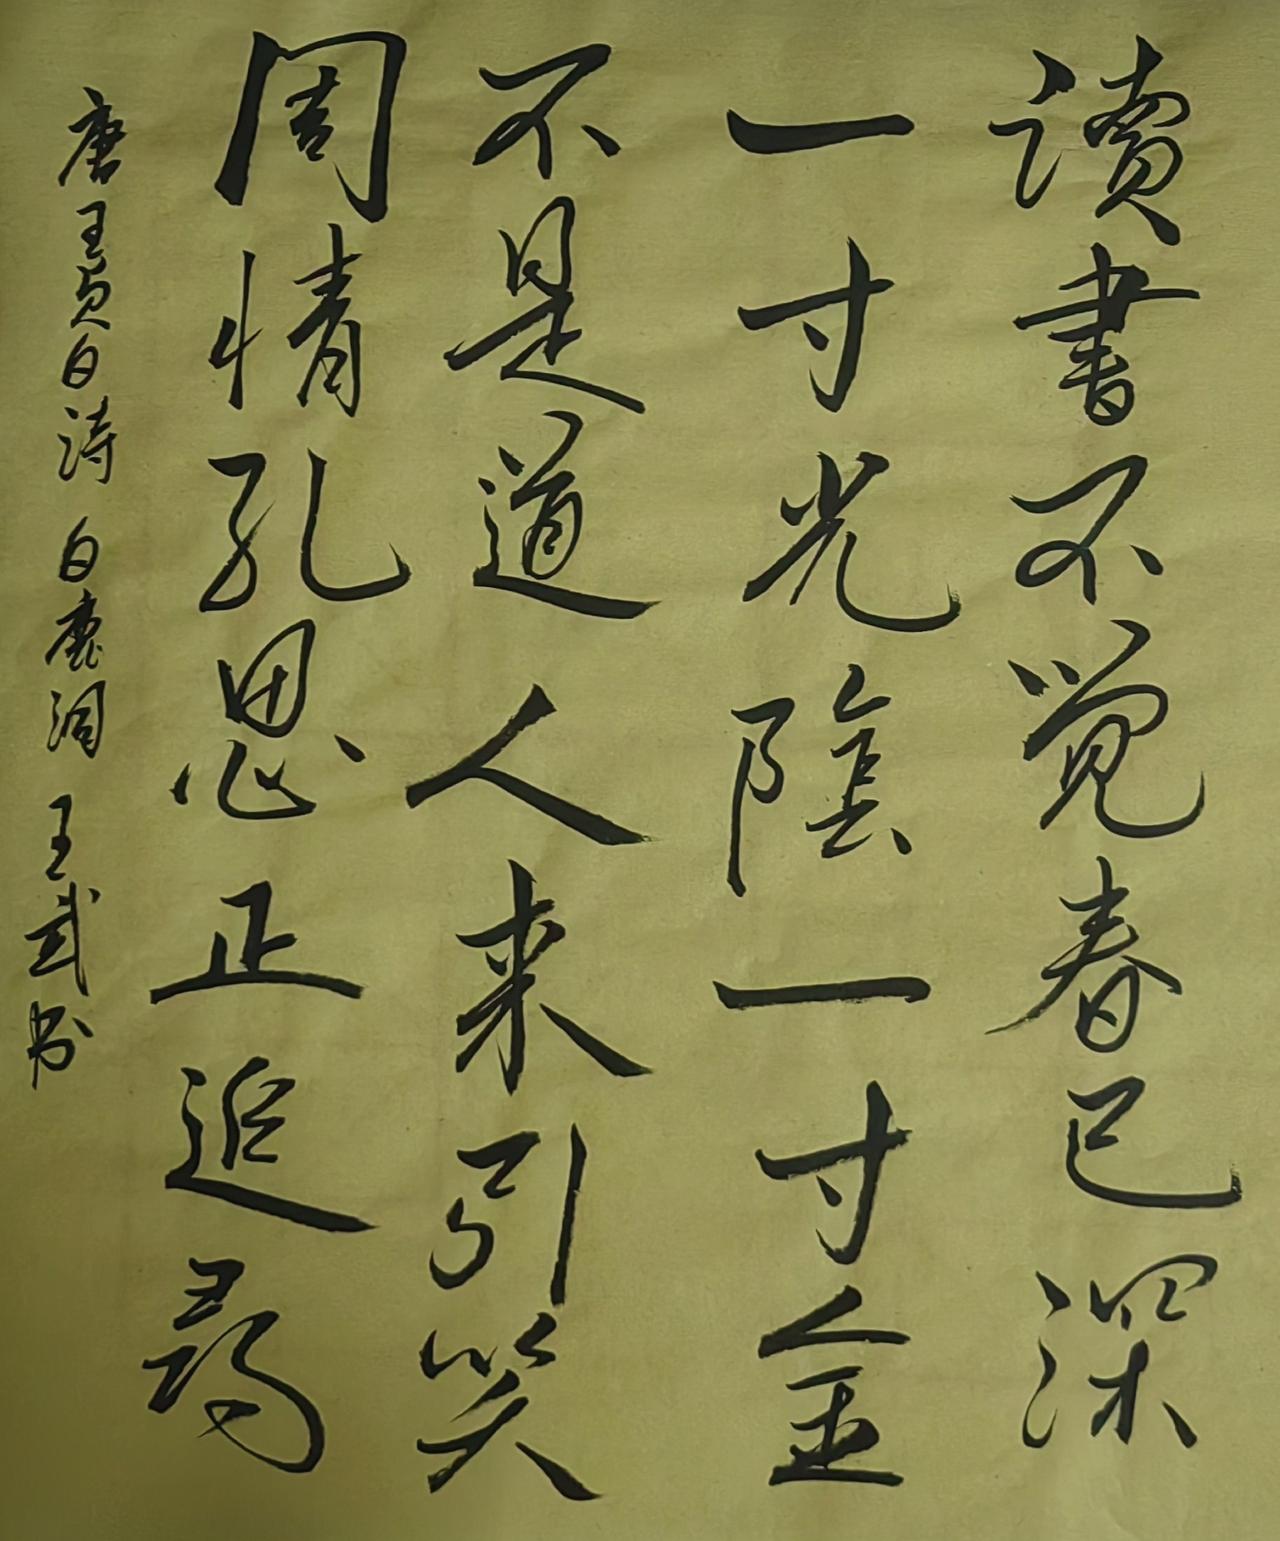 讀書不觉春已深
一寸光陰一寸金
不是道人来引笑
周情孔思正追尋
唐王贞白诗 白鹿洞 王武书